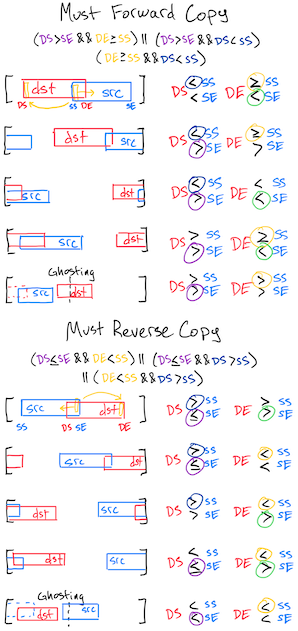 Must Forward Copy
(DS>SE && DE≥SS) || (DS>SE && DS<SS)
(DE≥SS && DS<SS)
dst src DS < SS DE ≥ SS
DS SS DE SE < SE < SE
dst src DS < SS DE ≥ SS
> SE > SE
src dst DS < SS DE < SS
> SE < SE
src dst DS > SS DE ≥ SS
> SE < SE
Ghosting
src dst DS > SS DE ≥ SS
> SE > SE
Must Reverse Copy
(DS≤SE && DE<SS) || (DS≤SE && DS>SS)
|| (DE<SS && DS>SS)
src dst DS > SS DE > SS
SS DS SE DE ≤ SE > SE
src dst DS > SS DE < SS
≤ SE < SE
dst src DS > SS DE < SS
> SE > SE
dst src DS < SS DE < SS
≤ SE > SE
Ghosting
dst src DS < SS DE < SS
≤ SE < SE